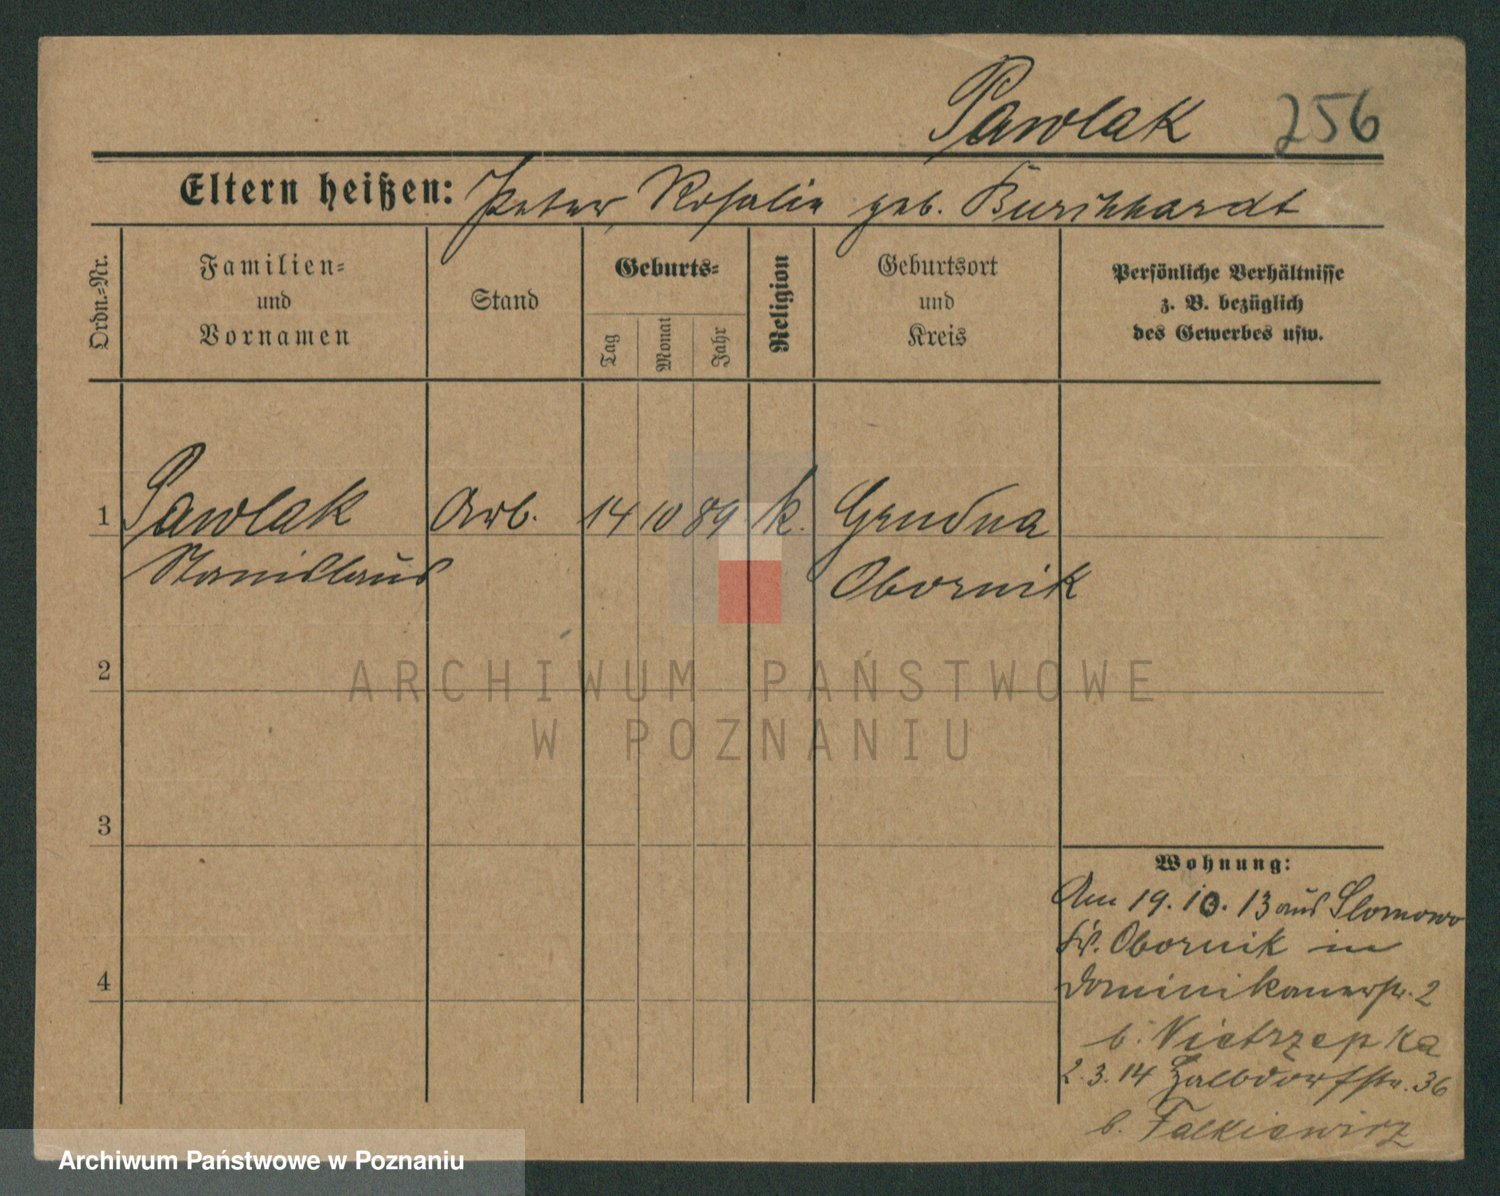 Pawlak 256
Eltern heißen: Peter, Rosalie geb. Burchhardt
Ordn.-Nr.
Familien-
und
Vornamen
Stand
Geburts-
Tag
Monat
Jahr
Religion
Geburtsort
und
Kreis
Persönliche Verhältnisse
z. B. bezüglich
des Gewerbes usw.
1 Pawlak Arb. 14 10 89 k. Grudna
Stanislaus Obornik
2
ARCHIWUM PAŃSTWOWE
W POZNANIU
3
Wohnung:
Am 19.10.13 aus Slomowo
Kr. Obornik in
Dominikanerstr. 2
b. Nietrzepka
2.3.14 Halbdorfstr. 36
b. Falkiewicz
4
Archiwum Państwowe w Poznaniu